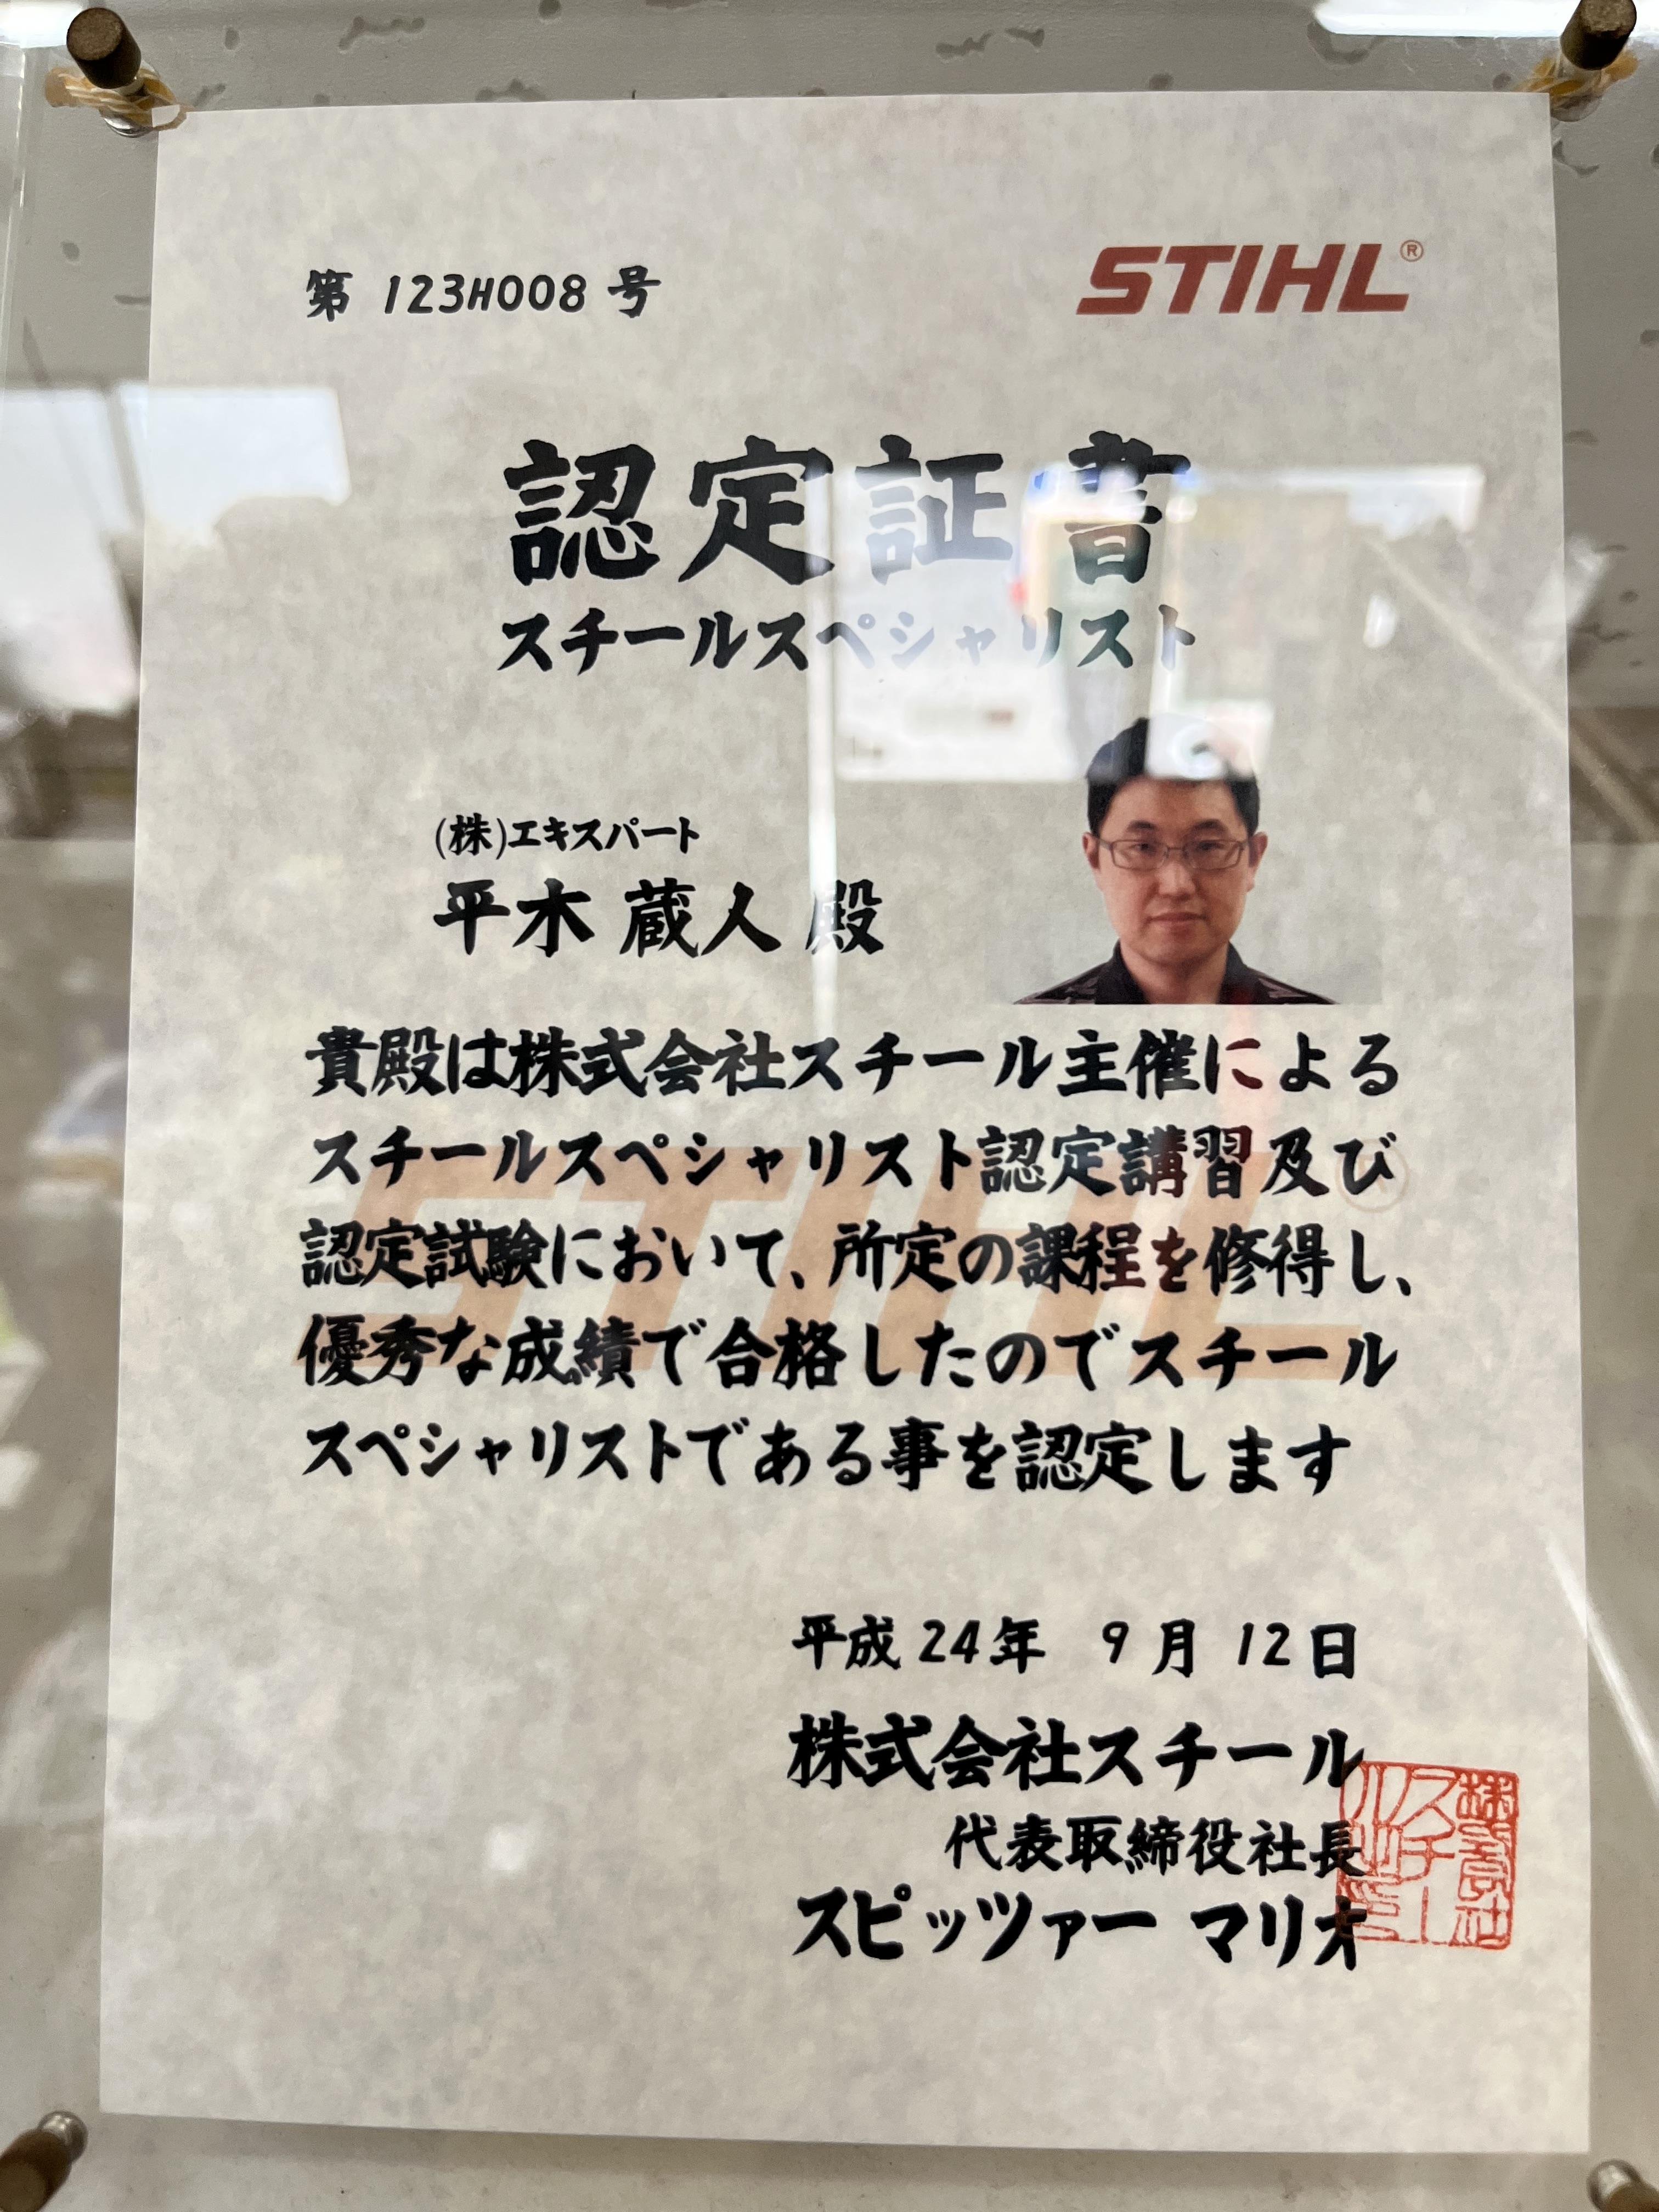 第 123H008 号
STIHL®
認定証書
スチールスペシャリスト
(株)エキスパート
平木 蔵人 殿
貴殿は株式会社スチール主催による
スチールスペシャリスト認定講習及び
認定試験において、所定の課程を修得し、
優秀な成績で合格したのでスチール
スペシャリストである事を認定します
STIHL®
平成 24年 9月 12日
株式会社スチール
代表取締役社長
スピッツァー マリオ
株式会社
スチー
ル